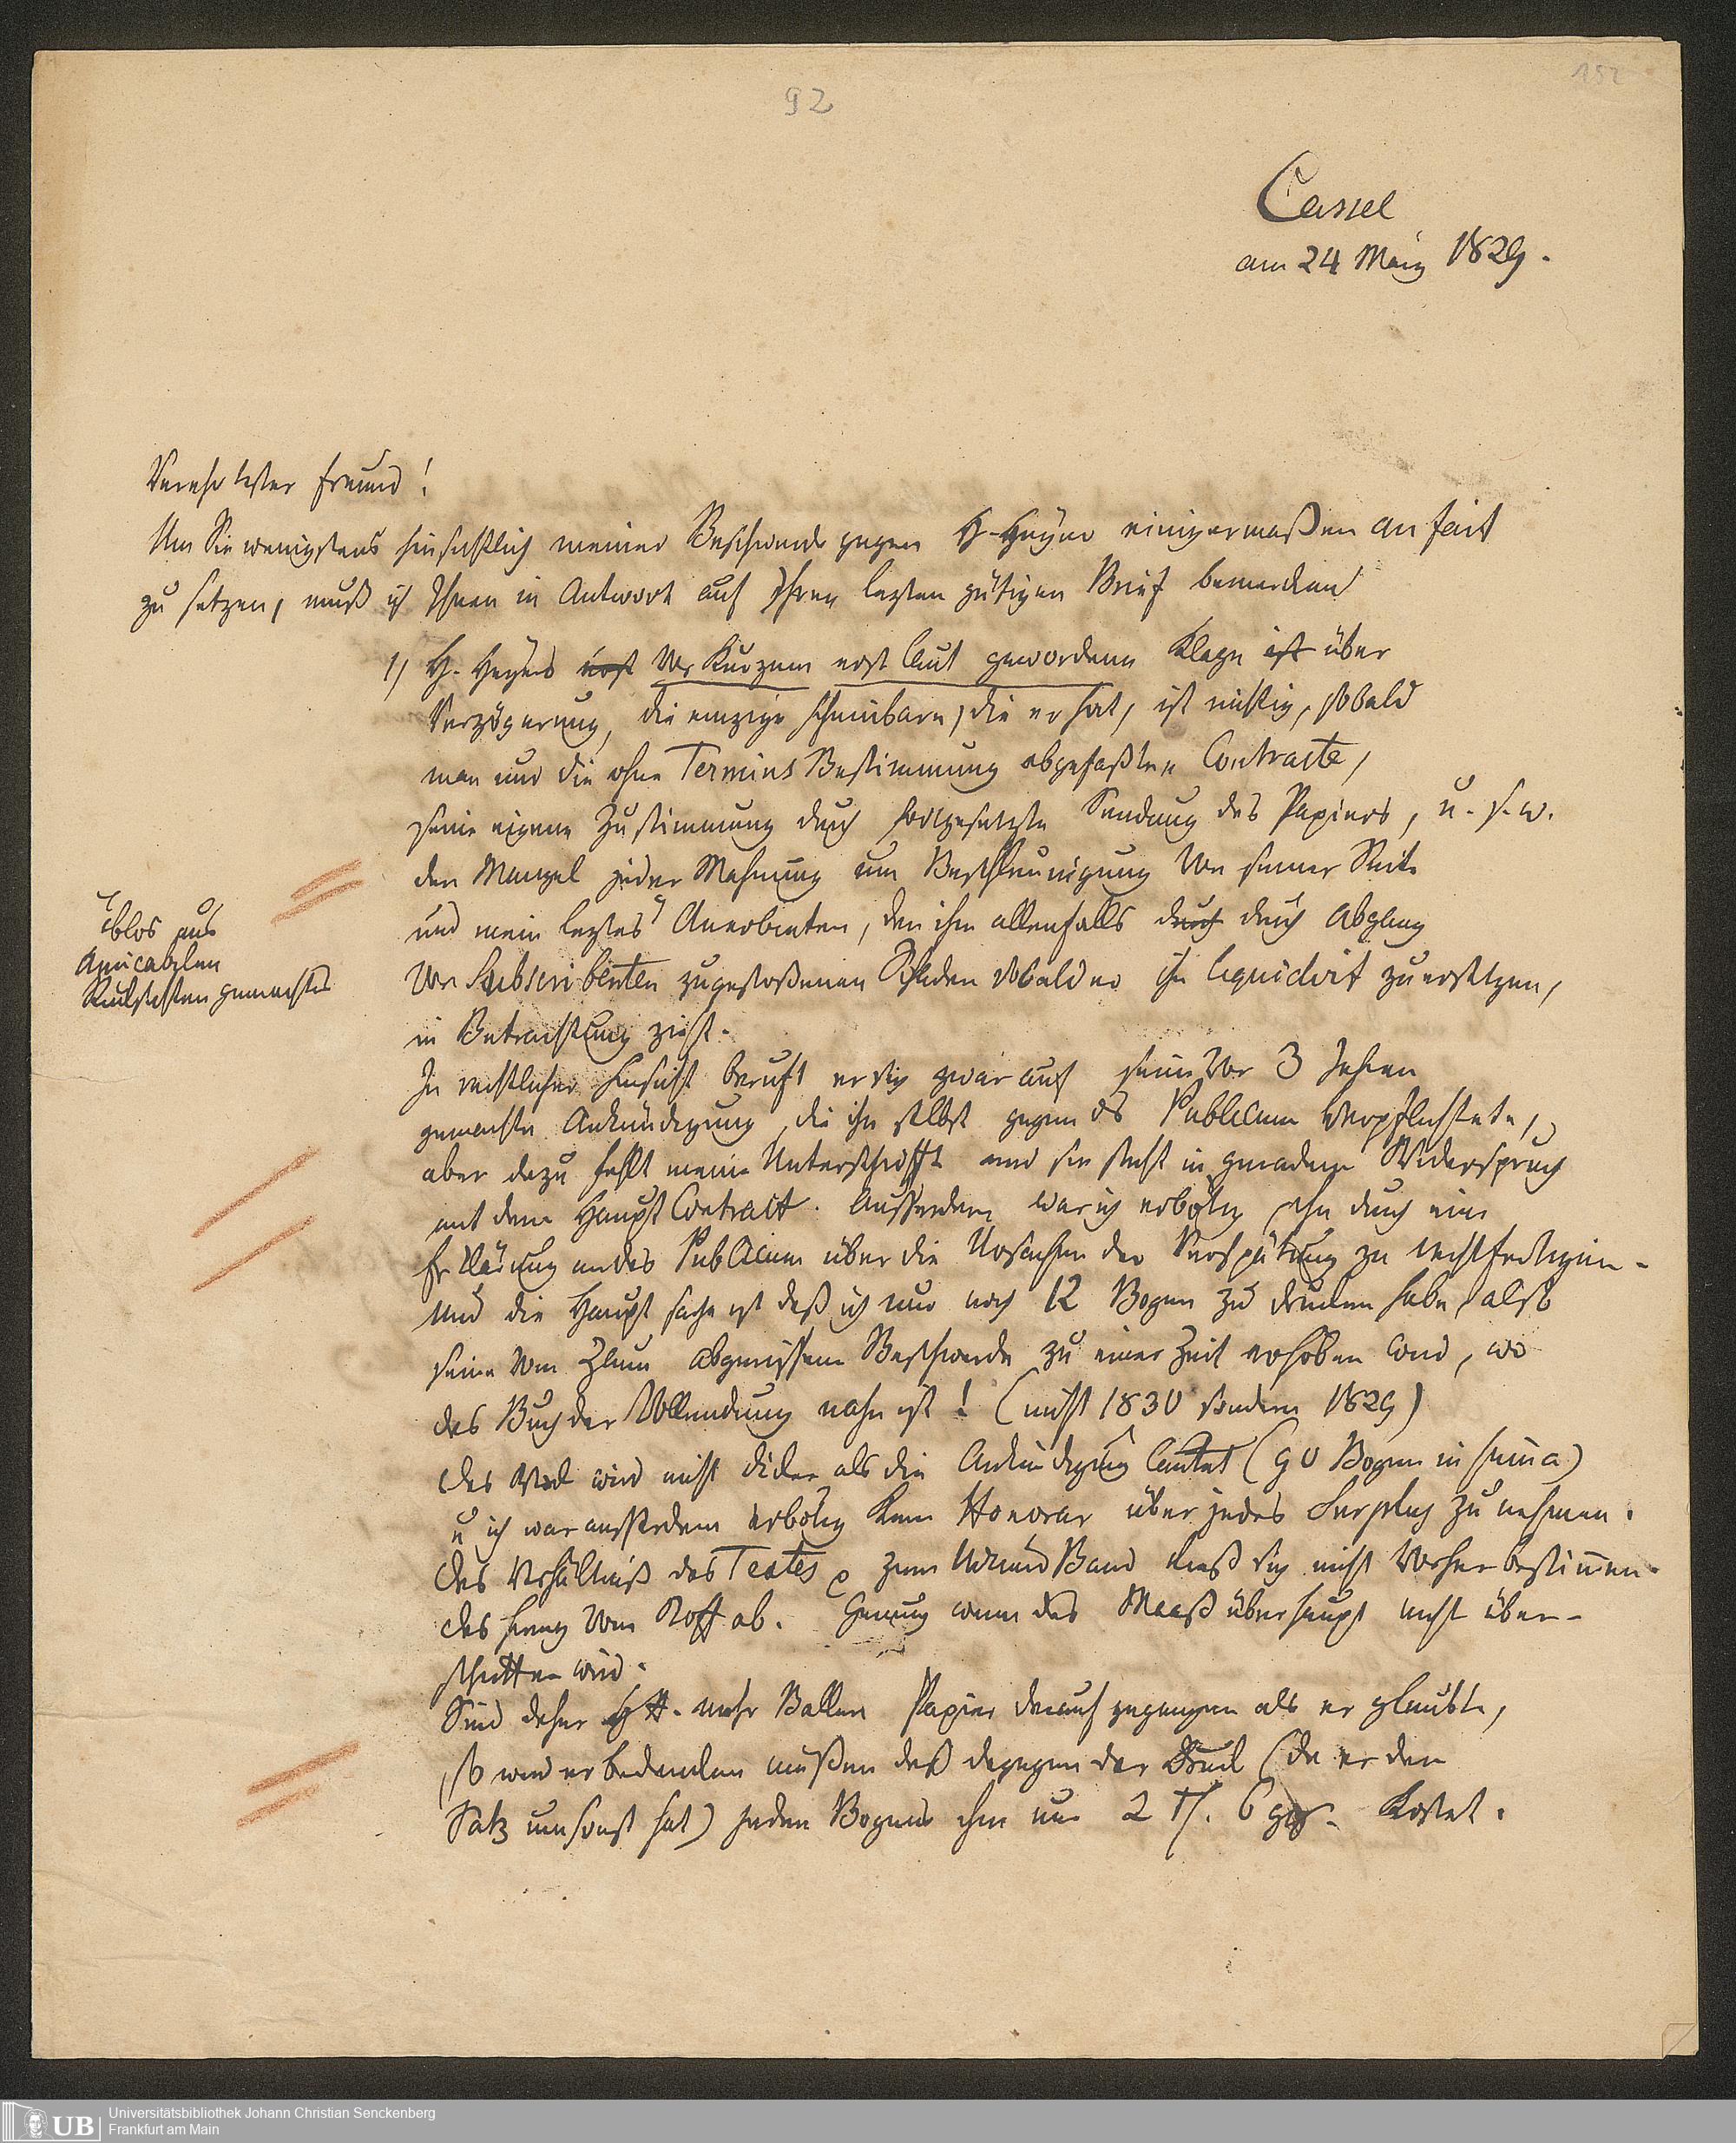 92
152
Cassel
am 24 März 1829.
Verehrtester Freund!
Um Sie wenigstens hinsichtlich meiner Beschwerde gegen H. Heyer einigermaßen au fait
zu setzen, muß ich Ihnen in Antwort auf Ihren lezten gütigen Brief bemerken
1) H. Heyers erst vor Kurzem erst laut gewordene Klage ist über
Verzögerung, die einzige scheinbare, die er hat, ist nichtig, sobald
man nur die ohne Termins Bestimmung abgefaßten Contracte,
seine eigene Zustimmung durch fortgesetzte Sendung des Papiers, u. s. w.
den Mangel jeder Mahnung um Beschleunigung von seiner Seite
und mein leztes Anerbieten, den ihm allenfalls durch durch Abgang
blos aus
Amicabeln
Rücksichten gemachtes
von Subscribenten zugestoßenen Schaden sobald er ihn liquidirt zu ersetzen,
in Betrachtung zieht.
In rechtlicher Hinsicht beruft er sich zwar auf seine vor 3 Jahren
gemachte Ankündigung, die ihn selbst gegen das Publicum verpflichtete,
aber dazu fehlt meine Unterschrift und sie steht in geradem Widerspruch
mit dem Haupt Contract. Ausserdem war ich erbötig ihn durch eine
Erklärung an das Publicum über die Ursachen der Verspätung zu rechtfertigen.
Und die Hauptsache ist daß ich nur noch 12 Bogen zu drucken habe, also
seine vom Zaun abgerissene Beschwerde zu einer Zeit erhoben wird, wo
das Buch der Vollendung nahe ist! (nicht 1830 sondern 1829)
Das Werk wird nicht dicker als die Ankündigung lautet (90 Bogen in summa)
u ich war ausserdem erbötig kein Honorar über jedes Surplus zu nehmen.
Das Verhältniß des Textes zum Band ließ sich nicht vorher bestimmen.
Das hing vom Stoff ab. Genug wenn das Maaß überhaupt nicht über-
schritten wird.
Sind daher mehr Ballen Papier darauf gegangen als er glaubte,
so wird er bedenken müßen daß dagegen der Druck (da er den
Satz umsonst hat) jeden Bogens ihm nur 2 Th. 6 ggr. kostet.
UB
Universitätsbibliothek Johann Christian Senckenberg
Frankfurt am Main